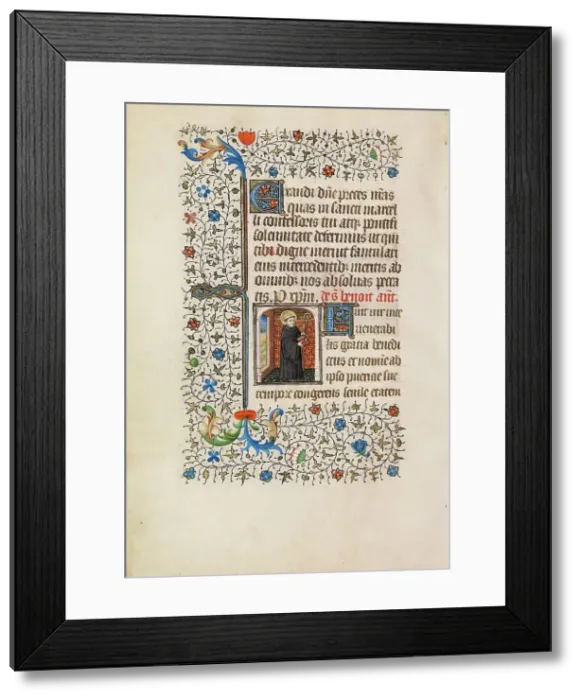 Exaudi dñe preces nr̃as
quas in sancti marcel
li confessoris tui atq; pontifi
solemnitate deferimus ut qui
tibi digne meruit famulari
eius intercedentib; meritis ab
omnibus nos absolvas pecca
tis. P xpm̃. de s̃ benoit añt.
Fuit vir vite
venerabi
lis gratia benedi
ctus et nomine ab
ipso puericie sue
tempore congerens senile etatem